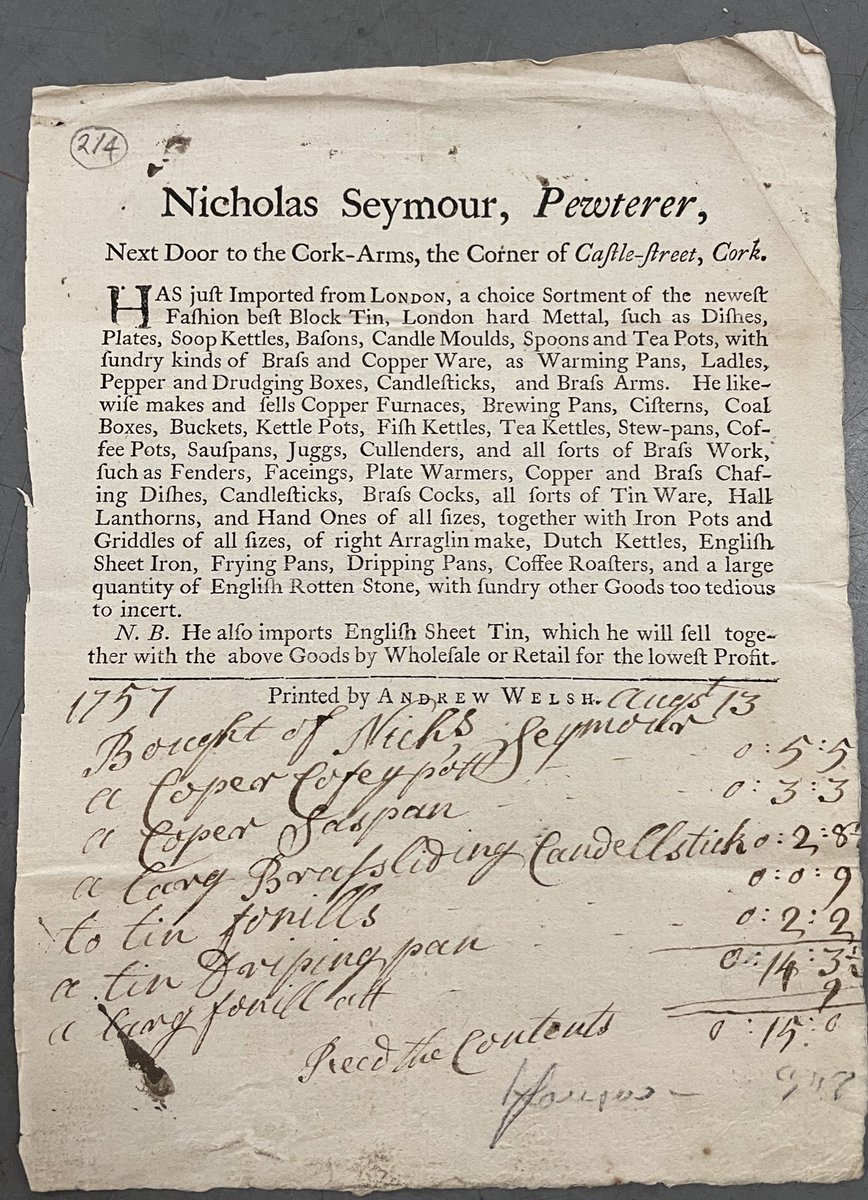 214
Nicholas Seymour, Pewterer,
Next Door to the Cork-Arms, the Corner of Caſtle-ſtreet, Cork.
HAS juſt Imported from LONDON, a choice Sortment of the neweſt
Faſhion beſt Block Tin, London hard Mettal, ſuch as Diſhes,
Plates, Soop Kettles, Baſons, Candle Moulds, Spoons and Tea Pots, with
ſundry kinds of Braſs and Copper Ware, as Warming Pans, Ladles,
Pepper and Drudging Boxes, Candleſticks, and Braſs Arms. He like-
wiſe makes and ſells Copper Furnaces, Brewing Pans, Ciſterns, Coal
Boxes, Buckets, Kettle Pots, Fiſh Kettles, Tea Kettles, Stew-pans, Cof-
fee Pots, Sauſpans, Juggs, Cullenders, and all ſorts of Braſs Work,
ſuch as Fenders, Faceings, Plate Warmers, Copper and Braſs Chaf-
ing Diſhes, Candleſticks, Braſs Cocks, all ſorts of Tin Ware, Hall
Lanthorns, and Hand Ones of all ſizes, together with Iron Pots and
Griddles of all ſizes, of right Arraglin make, Dutch Kettles, Engliſh
Sheet Iron, Frying Pans, Dripping Pans, Coffee Roaſters, and a large
quantity of Engliſh Rotten Stone, with ſundry other Goods too tedious
to incert.
N. B. He alſo imports Engliſh Sheet Tin, which he will ſell toge-
ther with the above Goods by Wholeſale or Retail for the loweſt Profit.
Printed by ANDREW WELSH.
1757 Augst 13
Bought of Nichs Seymour
a Coper Cofey pott 0:5:5
a Coper Saspan 0:3:3
a Larg Braſs ſliding Candellstick 0:2:8½
to tin fonills 0:0:9
a tin Driping pan 0:2:2
0:14:3½
a Larg fonill att 9
0:15:0
Recd the Contents